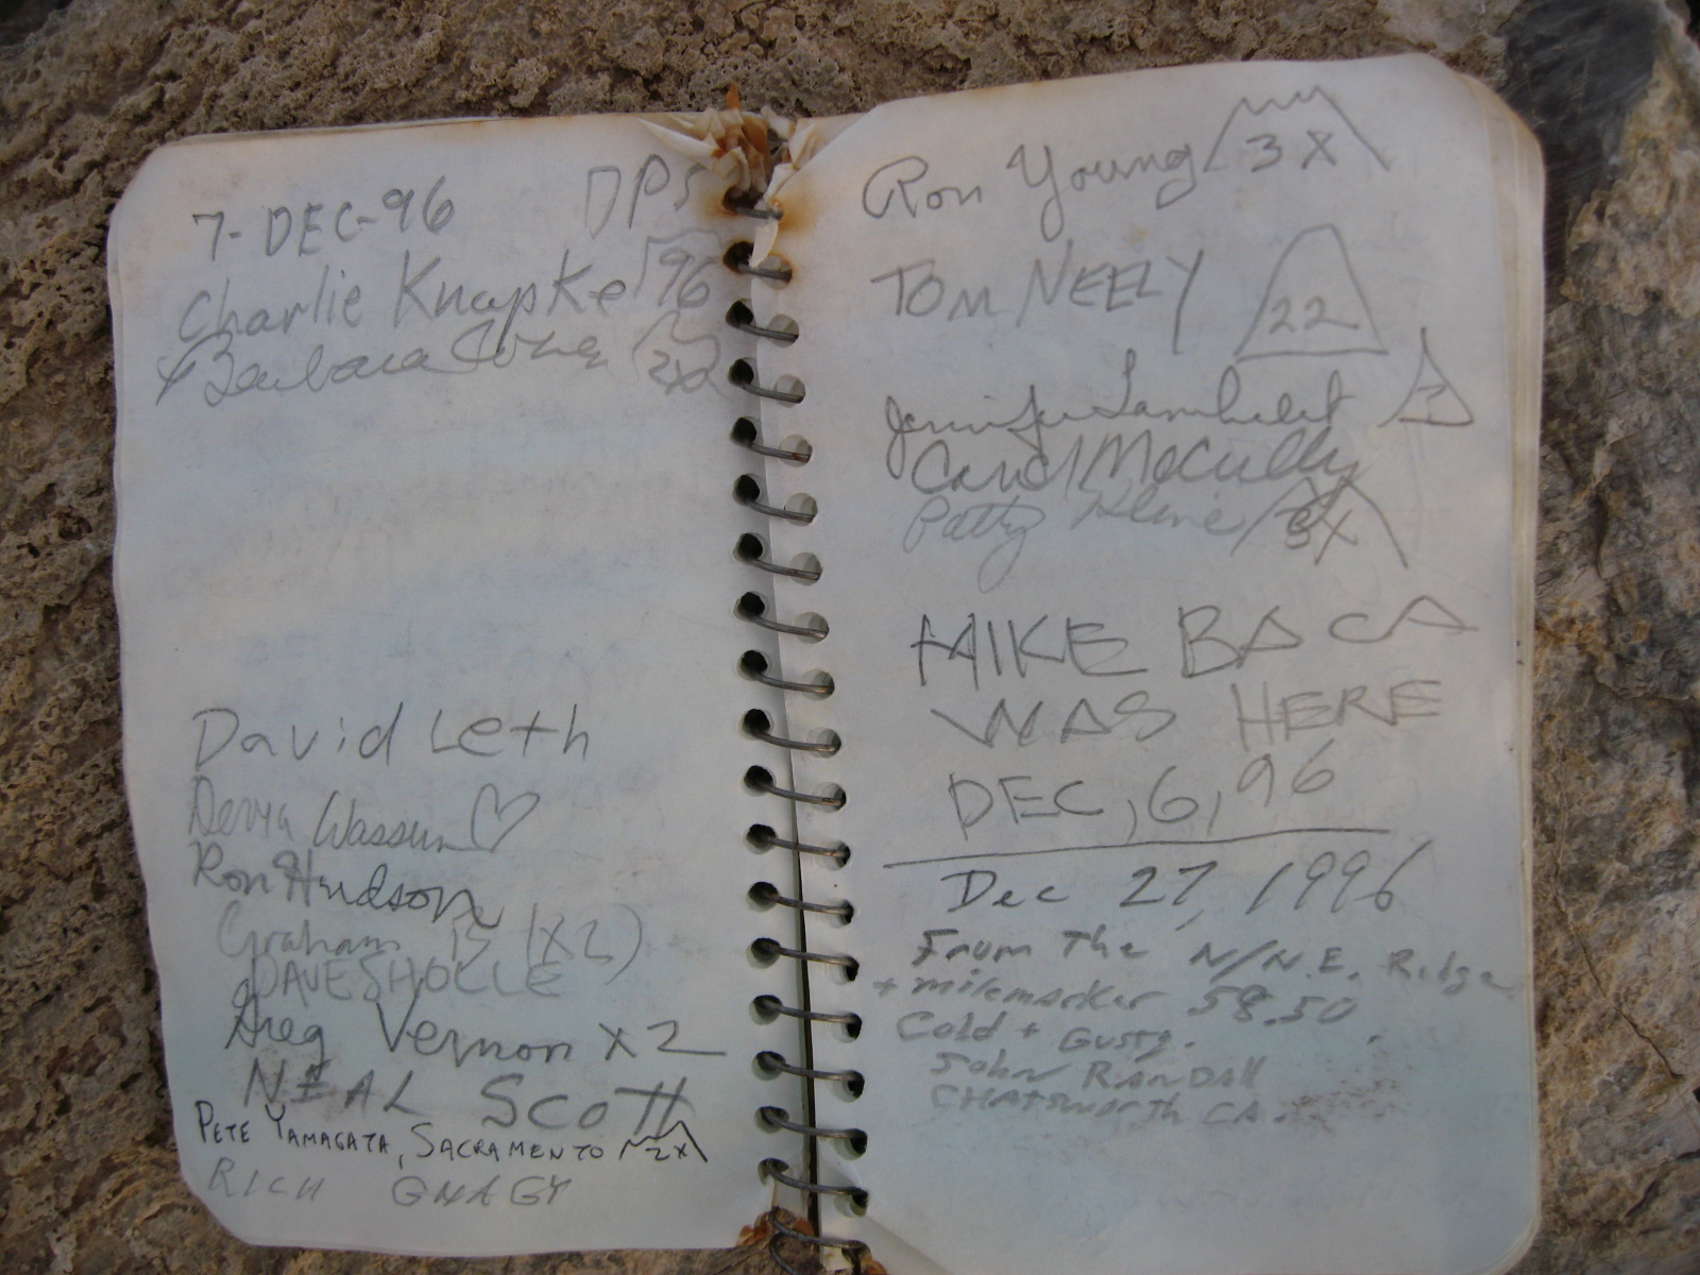 7-DEC-96 DPS
Charlie Knapke 96
+ Barbara 2x
David Leth
Derya Wassum
Ron Hudson
Graham B (x2)
DAVE SHOLLE
Greg Vernon x2
NEAL SCOTT
PETE YAMAGATA, SACRAMENTO 2x
RICH GNAGY
Ron Young 3X
TOM NEELY 22
Jennifer Lambelet
Carol McCully
Patty Kline 3X
MIKE BACA
WAS HERE
DEC, 6, 96
Dec 27, 1996
From The N/N.E. Ridge
+ milemarker 58.50
Cold + Gusty.
John RanDall
CHATSworth CA.